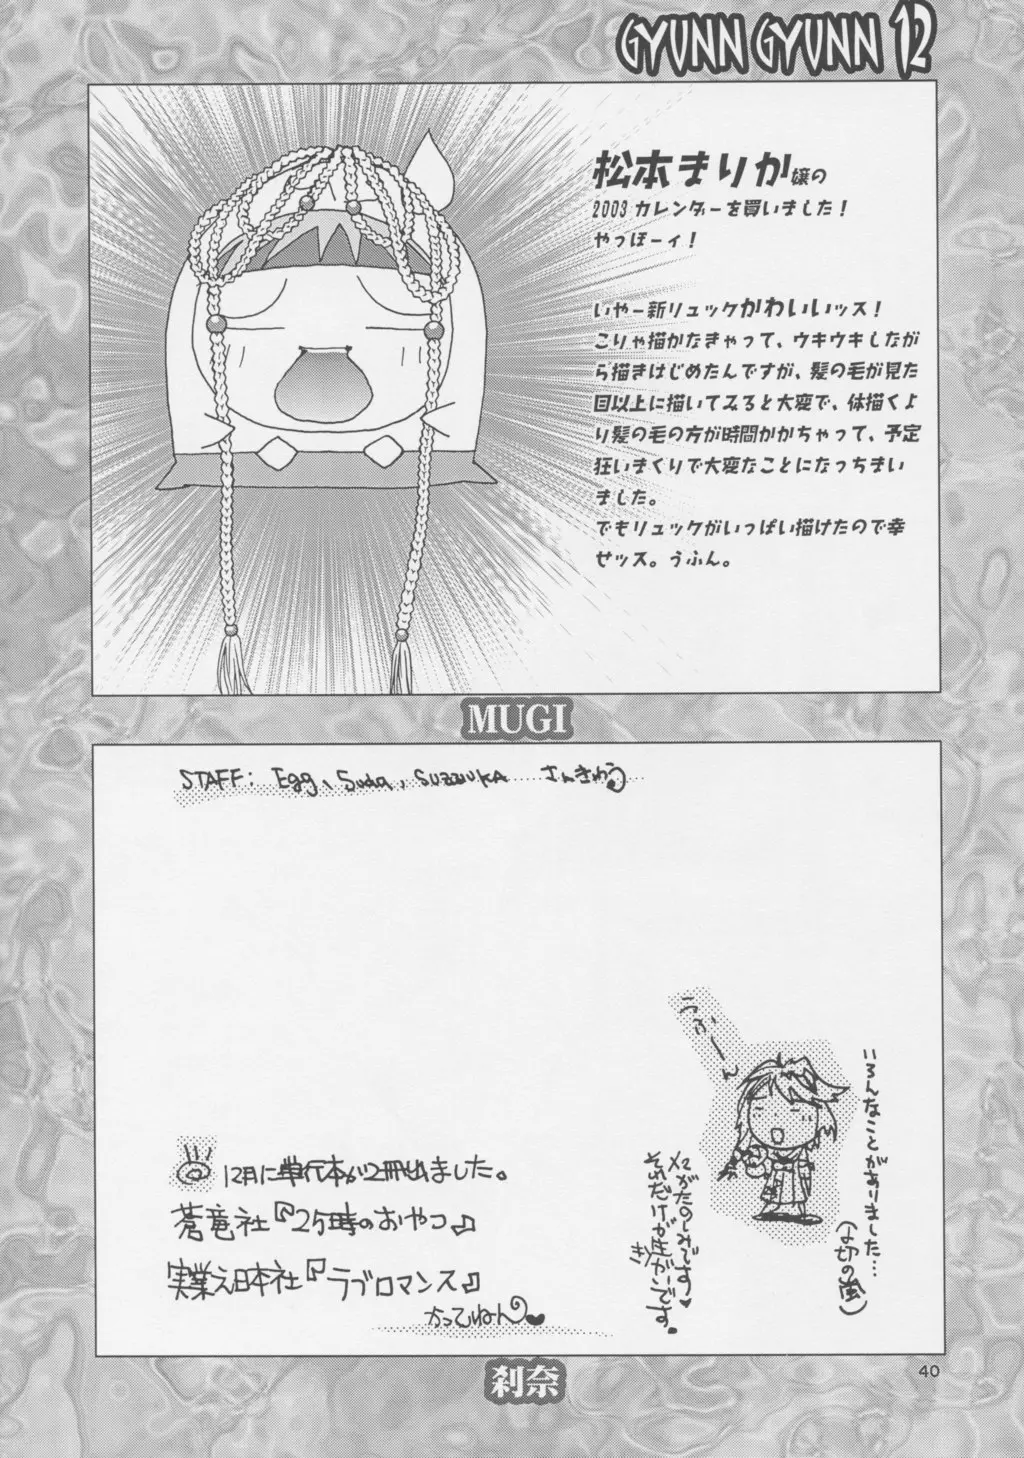 GYUNN GYUNN 12
松本まりか嬢の
2003 カレンダーを買いました！
やっほーィ！
いやー新リュックかわいいッス！
こりゃ描かなきゃって、ウキウキしなが
ら描きはじめたんですが、髪の毛が見た
目以上に描いてみると大変で、体描くよ
り髪の毛の方が時間かかちゃって、予定
狂いまくりで大変なことになっちまい
ました。
でもリュックがいっぱい描けたので幸
せッス。うふん。
MUGI
STAFF: Egg、Suda, SUZZUKA さんきゅう
うふーん
いろんなことがありました…
(〆切の嵐)
X2がたのしみです♥
それだけが生きがいです。
12月に単行本が2冊出ました。
蒼竜社『25時のおやつ』
実業之日本社『ラブロマンス』
かってねん♥
刹奈
40